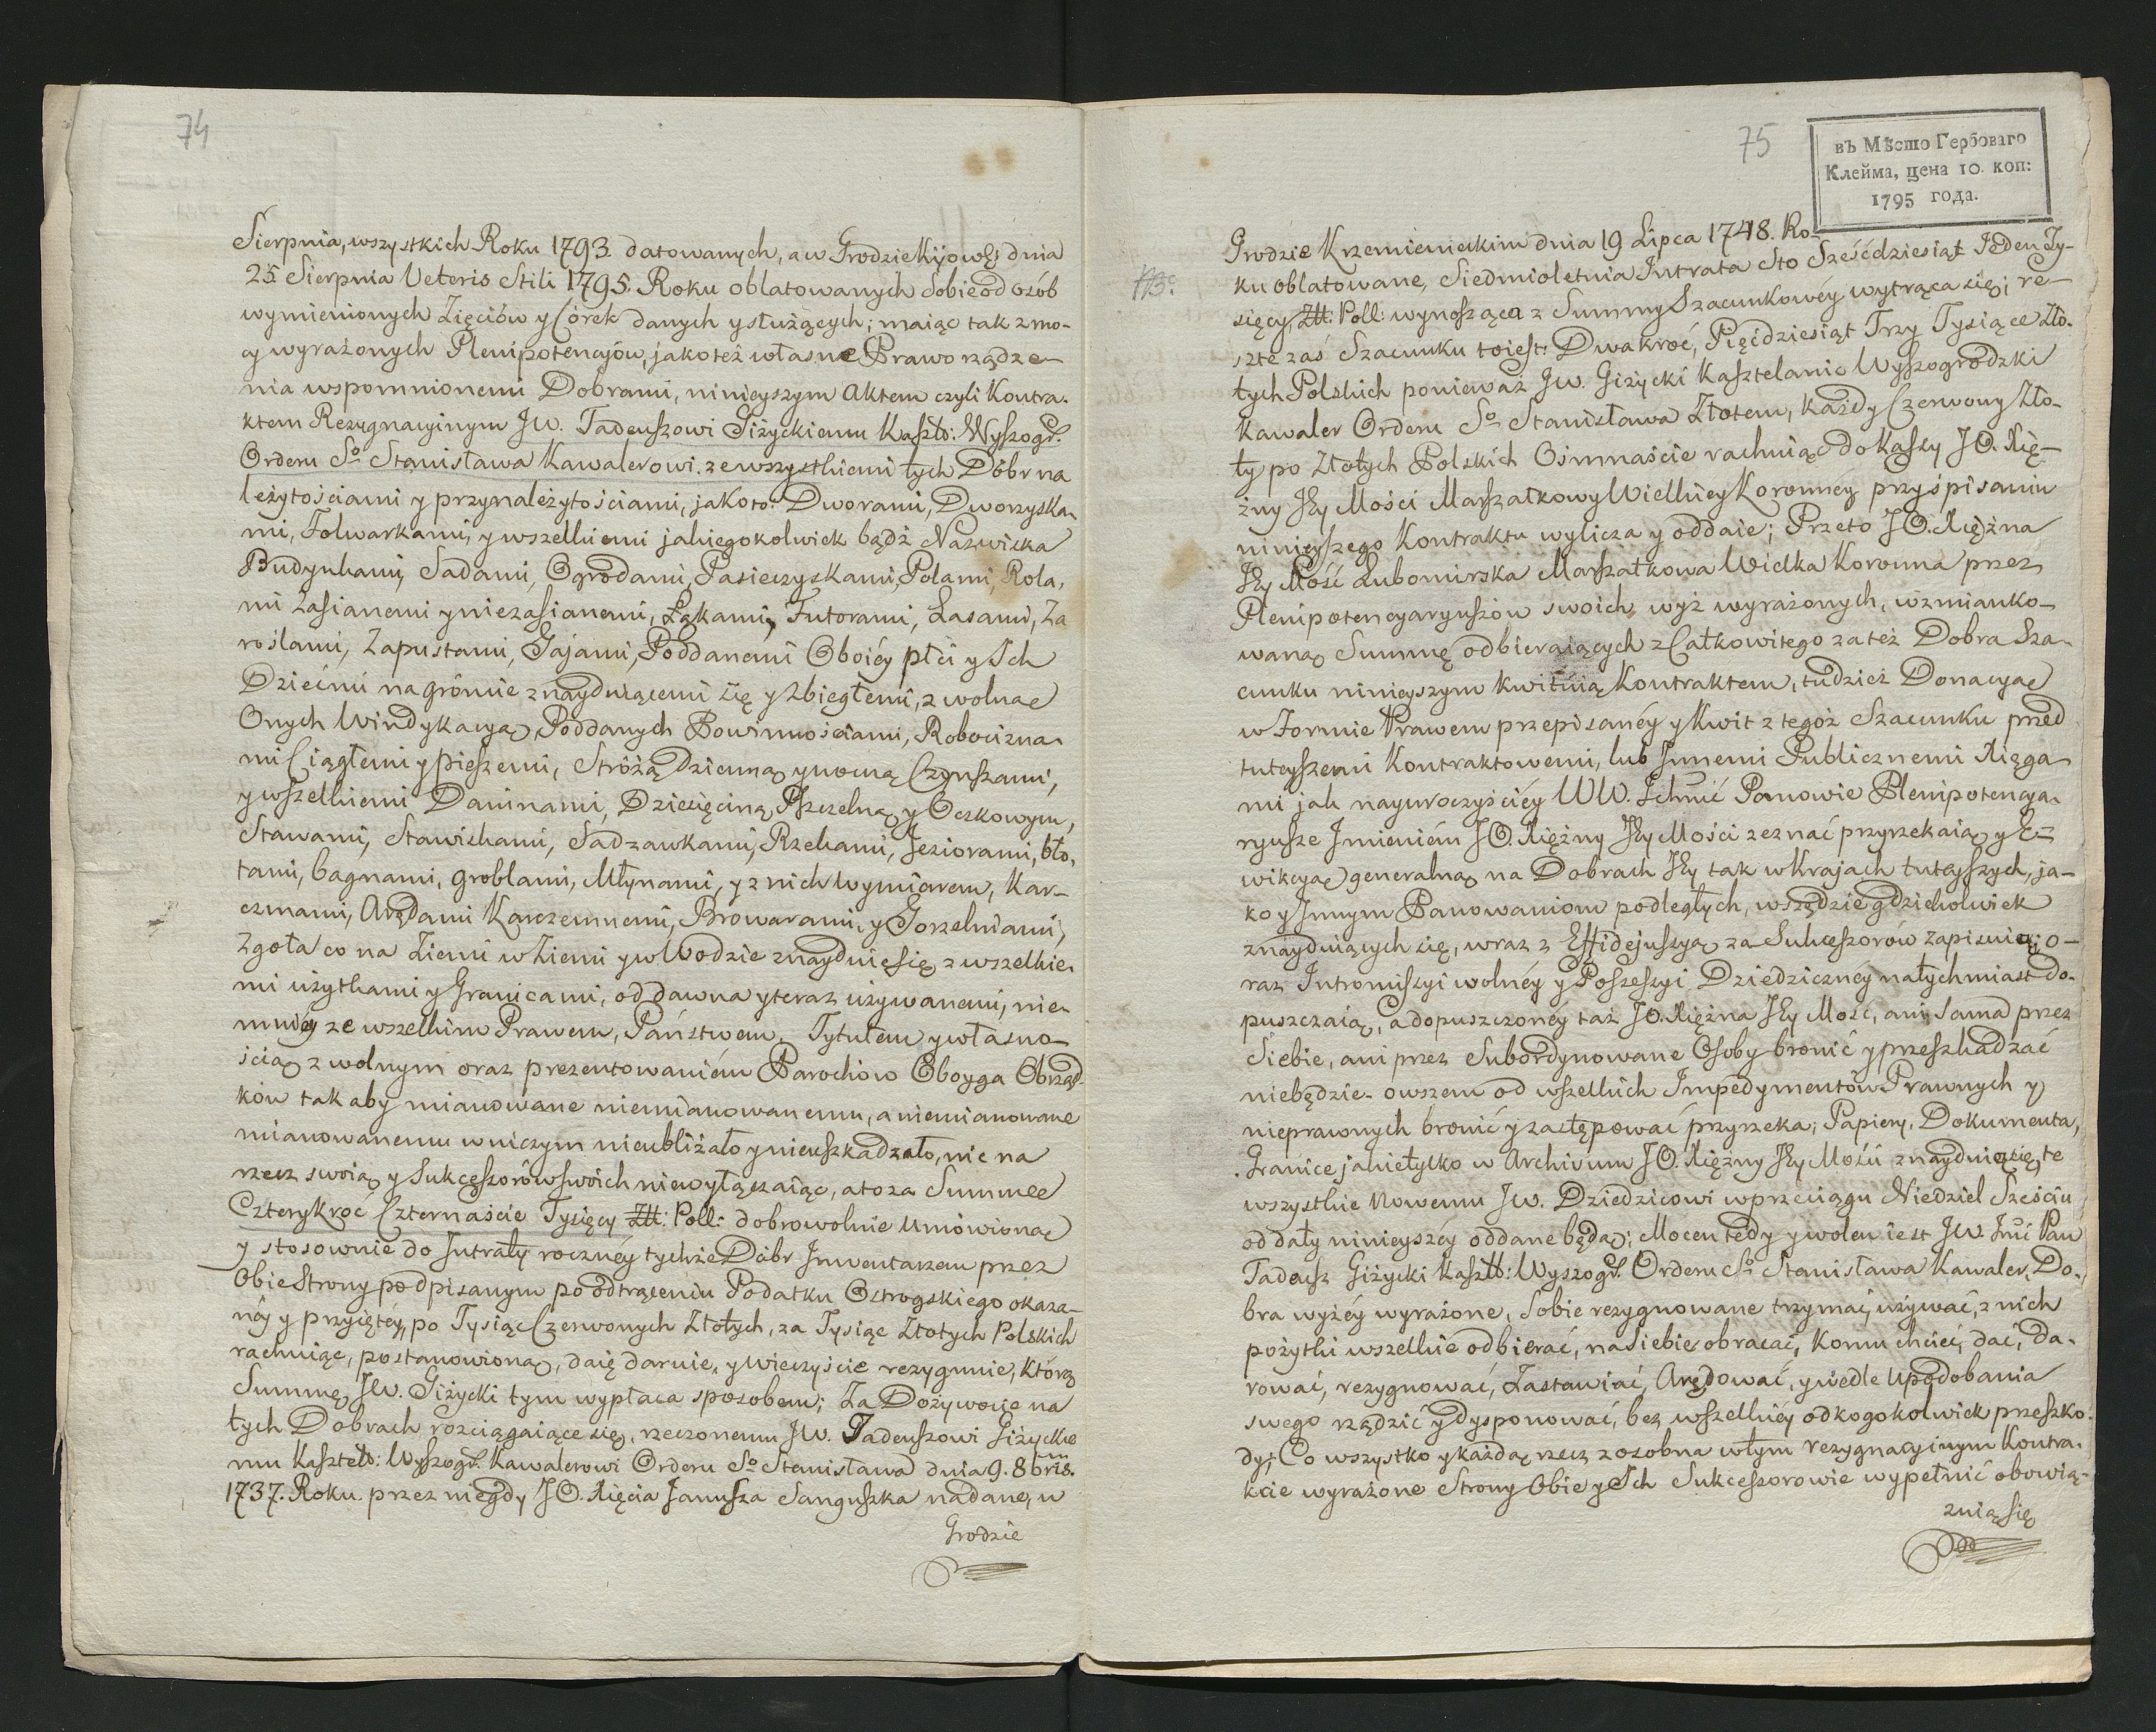 74
Sierpnia, wszystkich Roku 1793 datowanych, a w Grodzie Kijowsk: dnia
25 Sierpnia Veteris Stili 1795. Roku oblatowanych Sobie od osób
wymienionych Zięciów y Córek danych y służących; maiąc tak z mo-
cy wyrażonych Plenipotencyów, jako też własne Prawo rządze-
nia wspomnionemi Dobrami, ninieyszym Aktem czyli Kontra-
ktem Rezygnacyinym JW. Tadeuszowi Giżyckiemu Kasztl: Wyszogr.
Orderu So Stanisława Kawalerowi. ze wszystkiemi tych Dóbr na
leżytościami y przynależytościami, jako to: Dworami, Dworzyska-
mi, Folwarkami, y wszelkiemi jakiegokolwiek bądź Nazwiska
Budynkami, Sadami, Ogrodami, Pasieczyskami, Polami, Rola-
mi zasianemi y niezasianemi, Łąkami, Futorami, Lasami, Za
roślami, Zapustami, Gajami, Poddanemi Oboiéy płci y Ich
Dziećmi na grómie znayduiącemi się y zbiegłemi, z wolną
Onych Windykacyą, Poddanych Powinnościami, Robocizna-
mi Ciągłemi y pieszemi, Stróżą Dzienną y nocną Czynszami,
y wszelkiemi Daninami, Dziesięciną Pszczelną y Oczkowym,
Stawami, Stawiskami, Sadzawkami, Rzekami, Jeziorami, bło-
tami, bagnami, groblami, Młynami, y z nich wymiarem, Kar-
czmami, Arędami Karczemnemi, Browarami, y Gorzelniami,
Zgoła co na Ziemi w Ziemi y w Wodzie znayduie się z wszelkie-
mi użytkami y Granicami, od dawna y teraz używanemi, nie-
mniéy ze wszelkim Prawem, Państwem, Tytułem y własno-
ścią z wolnym oraz prezentowaniém Parochów Oboyga Obrząd-
ków tak aby mianowane niemianowanemu, a niemianowane
mianowanemu w niczym nieubliżało y nieuszkadzało, nic na
rzecz swoią y Sukcessorów swoich niewyłączaiąc, a to za Summę
Czterykroć Czternaście Tysięcy Złł: Poll: dobrowolnie umówioną
y stosownie do Intraty rocznéy tychże Dóbr Inwentarzem przez
Obie Strony podpisanym po odtrąceniu Podatku Ostrogskiego okaza-
néy y przyiętéy, po Tysiąc Czerwonych Złotych, za Tysiąc Złotych Polskich
rachuiąc, postanowioną, daię daruie, y wieczyście rezygnuie, którą
Summę JW. Giżycki tym wypłaca sposobem; Za Dożywocie na
tych Dobrach rozciągaiące się, rzeczonemu JW. Tadeuszowi Giżyckie
mu Kasztell: Wyszogr. Kawalerowi Orderu So Stanisława dnia 9. 8bris.
1737. Roku przez niegdy JO. Xięcia Janusza Sanguszka nadane, w
Grodzie
75
въ Мѣсто Гербоваго
Клейма, цена 10. коп:
1795 года.
Grodzie Krzemienieckim dnia 19 Lipca 1748. Ro-
ku oblatowane, Siedmioletnia Intrata Sto Sześćdziesiąt Jeden Ty-
sięcy Złł: Poll: wynosząca z Summy Szacunkowéy wytrąca się; re-
sztę zaś Szacunku to iest: Dwakroć, Pięćdziesiąt Trzy Tysiące Zło-
tych Polskich ponieważ JW. Giżycki Kasztelanic Wyszogrodzki
Kawaler Orderu So Stanisława Złotem, każdy Czerwony Zło-
ty po Złotych Polskich Ośmnaście rachuiąc do Kassy JO. Xię-
żny Jéy Mości Marszałkowy Wielkiey Koronnéy przy spisaniu
ninieyszego Kontraktu wylicza y oddaie; Przeto JO. Xiężna
Jéy Mość Lubomirska Marszałkowa Wielka Koronna przez
Plenipotencyaryuszów swoich wyż wyrażonych, wzmianko-
waną Summę odbieraiących z Całkowitego za też Dobra Sza-
cunku ninieyszym kwituią Kontraktem, tudzież Donacyą
w Formie Prawem przepisanéy y Kwit z tegoż Szacunku przed
tuteyszemi Kontraktowemi, lub Innemi Publicznemi Xięga-
mi jak nayuroczyściéy WW. Ichmć Panowie Plenipotencya-
ryusze Imieniém JO. Xiężny Jéy Mości zeznać przyrzekaią y E-
wikcyą generalną na Dobrach Jéy tak w Krajach tuteyszych, ja-
ko y Innym Panowaniom podległych, wszędzie gdziekolwiek
znayduiących się, wraz z Effidejussyą za Sukcessorów zapisuią; o-
raz Intromissyi wolnéy y Possessyi Dziedzicznéy natychmiast do-
puszczaią, a dopuszczonéy taż JO. Xiężna Jéy Mość, ani Sama przez
Siebie, ani przez Subordynowane Osoby bronić y przeszkadzać
niebędzie. owszem od wszelkich Impedymentów Prawnych y
nieprawnych bronić y zastępować przyrzeka; Papiery, Dokumenta,
Granice jakie tylko w Archivum JO. Xiężny Jéy Mości znayduią się, te
wszystkie Nowemu JW. Dziedzicowi w przeciągu Niedziel Sześciu
od daty ninieyszéy oddane będą; Mocen tedy y wolen iest JW. Jmć Pan
Tadeusz Giżycki Kasztl: Wyszogr. Orderu So Stanisława Kawaler, Do-
bra wyżéy wyrażone, Sobie rezygnowane trzymać, używać, z nich
pożytki wszelkie odbierać, na Siebie obracać, komu chcieć, dać, da-
rować, rezygnować, Zastawiać, Arędować, y wedle upodobania
swego rządzić y dysponować, bez wszelkiéy od kogokolwiek przeszko-
dy; Co wszystko y każdą rzecz z osobna w tym rezygnacyinym Kontra-
kcie wyrażone Strony Obie y Ich Sukcessorowie wypełnić obowią-
zuią się